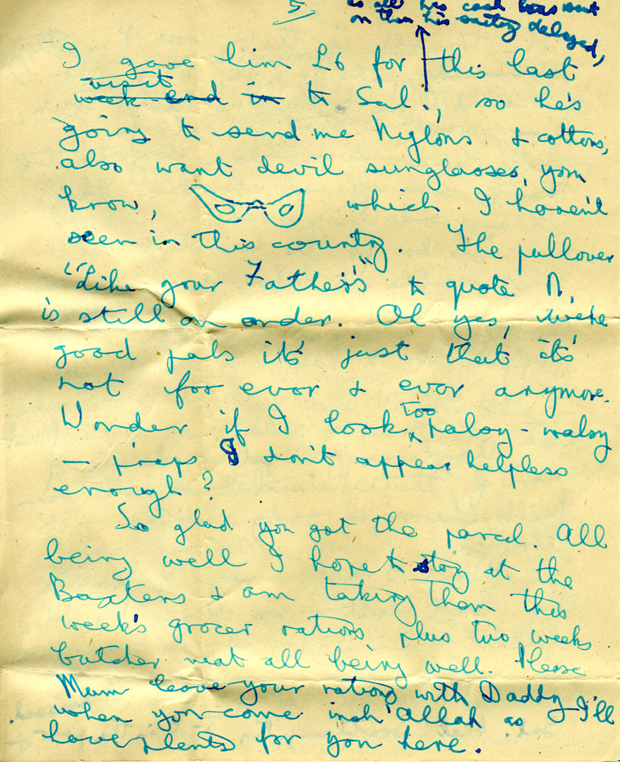 5/
as all his cash was sent
on then his outing delayed,
I gave him £6 for this last
visit
week end in to Sal., so he's
going to send me Nylons & cottons,
also want devil sunglasses, you
know, which I haven't
seen in this country. The pullover
"Like your Father's" to quote N,
is still on order. Oh yes, we're
good pals it's just that it's
not for ever & ever anymore.
Wonder if I look too palsy-walsy
— p'raps I don't appear helpless
enough?
So glad you got the parcel. All
being well I hope to stay at the
Baxters & am taking them this
week's grocer rations plus two weeks
butcher meat all being well. Please
Mum leave your rations with Daddy
when you come insh'Allah as I'll
have plenty for you here.